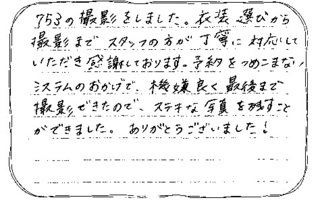 753の撮影をしました。衣装選びから
撮影まで スタッフの方が丁寧に対応して
いただき感謝しております。予約をつめこまない
システムのおかげで、機嫌良く最後まで
撮影できたので、ステキな写真を残すこと
ができました。ありがとうございました！